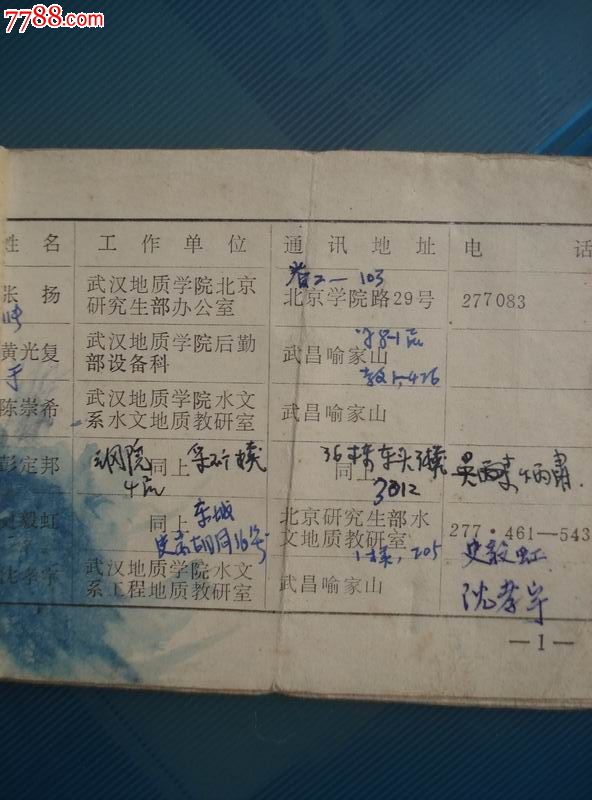 7788.com
姓 名 工作单位 通讯地址 电 话
103
张 扬 武汉地质学院北京 研究生部办公室 北京学院路29号 277083
黄光复 武汉地质学院后勤 部设备科 武昌喻家山
陈崇希 武汉地质学院水文 系水文地质教研室 武昌喻家山
彭定邦 同上 同上
4区 3012
史毅虹 同上 东城 北京研究生部水 文地质教研室 277·461—543
史家胡同16号 205 史毅虹
沈孝宇 武汉地质学院水文 系工程地质教研室 武昌喻家山 沈孝宇
—1—